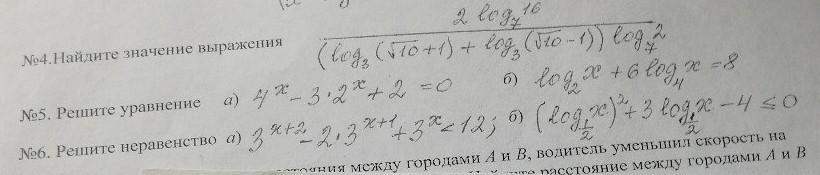 №4.Найдите значение выражения (2 log₇ 16) / ((log₃ (√10+1) + log₃ (√10-1)) log₇ 2)
№5. Решите уравнение а) 4^x - 3·2^x + 2 = 0 б) log₂ x + 6 log₄ x = 8
№6. Решите неравенство а) 3^(x+2) - 2·3^(x+1) + 3^x < 12; б) (log_(1/2) x)² + 3 log_(1/2) x - 4 ≤ 0
между городами А и В, водитель уменьшил скорость на
расстояние между городами А и В